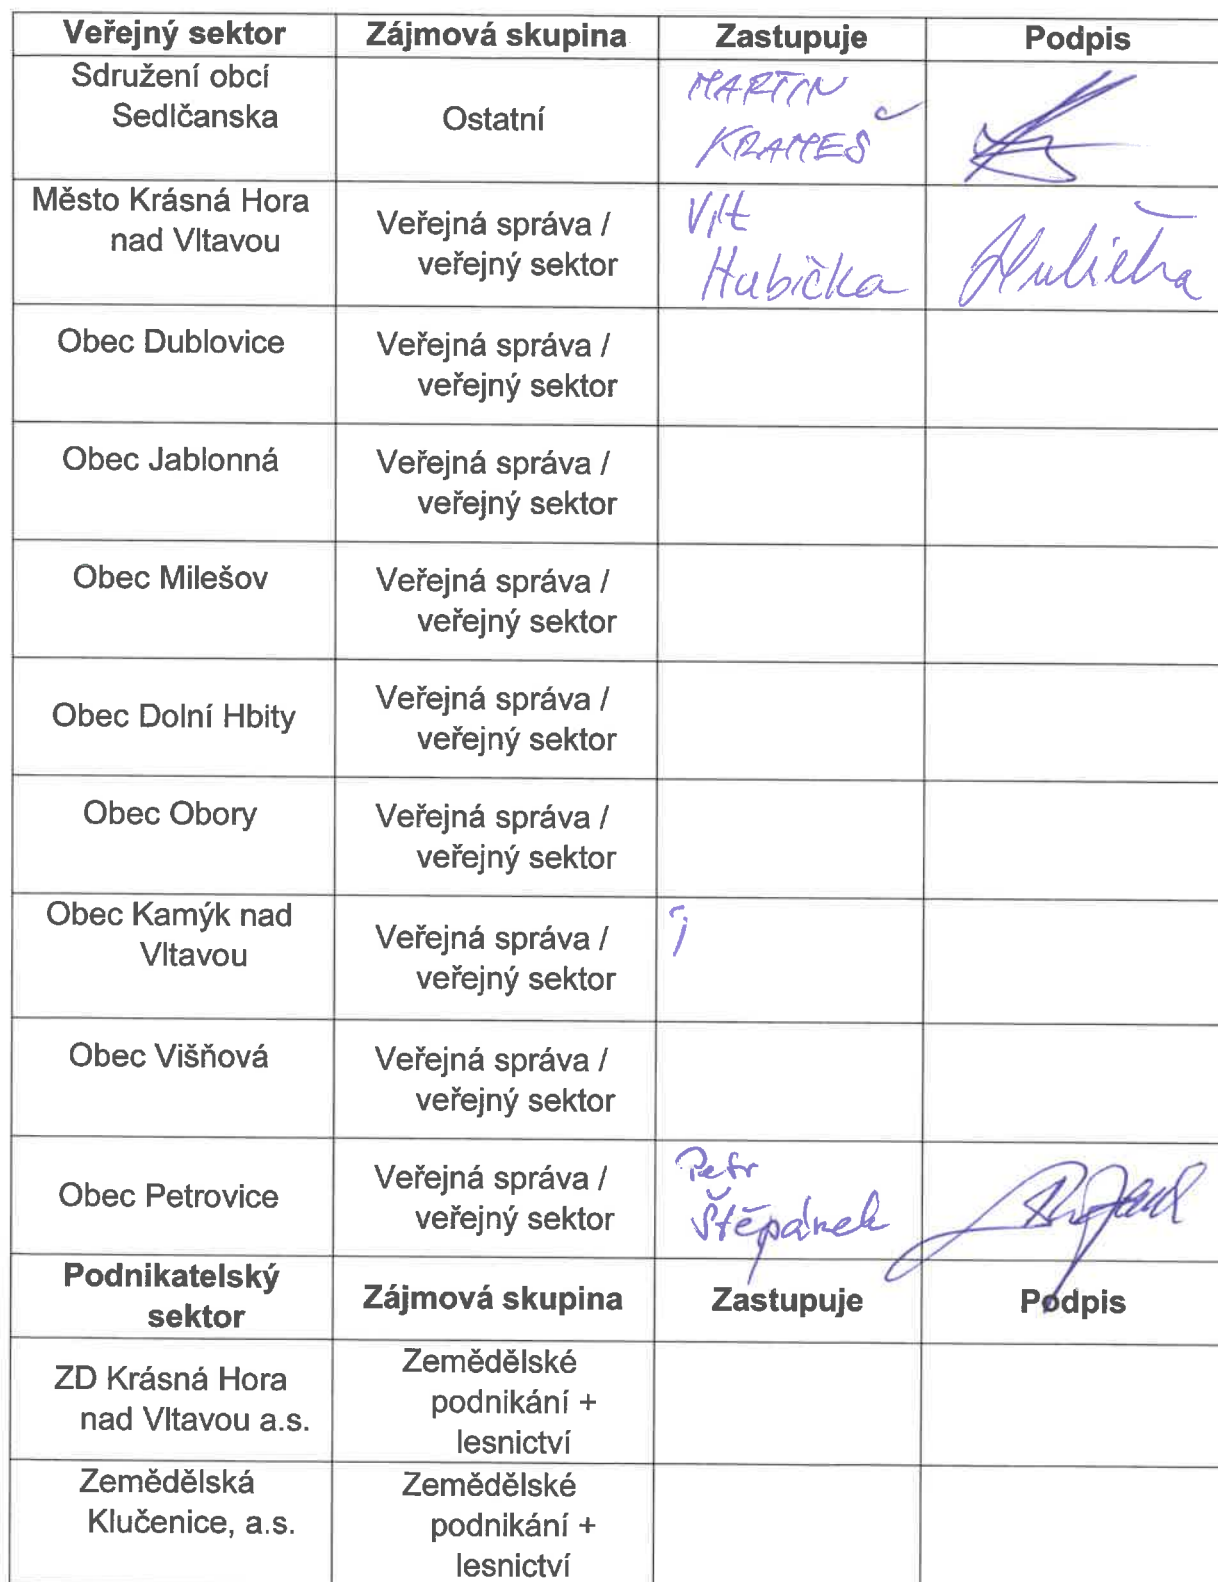 Veřejný sektor Zájmová skupina Zastupuje Podpis
Sdružení obcí
Sedlčanska
Ostatní
MARTIN
KRAMEŠ
Město Krásná Hora
nad Vltavou
Veřejná správa /
veřejný sektor
Vít
Hubička
Hubička
Obec Dublovice
Veřejná správa /
veřejný sektor
Obec Jablonná
Veřejná správa /
veřejný sektor
Obec Milešov
Veřejná správa /
veřejný sektor
Obec Dolní Hbity
Veřejná správa /
veřejný sektor
Obec Obory
Veřejná správa /
veřejný sektor
Obec Kamýk nad
Vltavou
Veřejná správa /
veřejný sektor
Obec Višňová
Veřejná správa /
veřejný sektor
Obec Petrovice
Veřejná správa /
veřejný sektor
Petr
Štěpánek
Podnikatelský
sektor
Zájmová skupina Zastupuje Podpis
ZD Krásná Hora
nad Vltavou a.s.
Zemědělské
podnikání +
lesnictví
Zemědělská
Klučenice, a.s.
Zemědělské
podnikání +
lesnictví